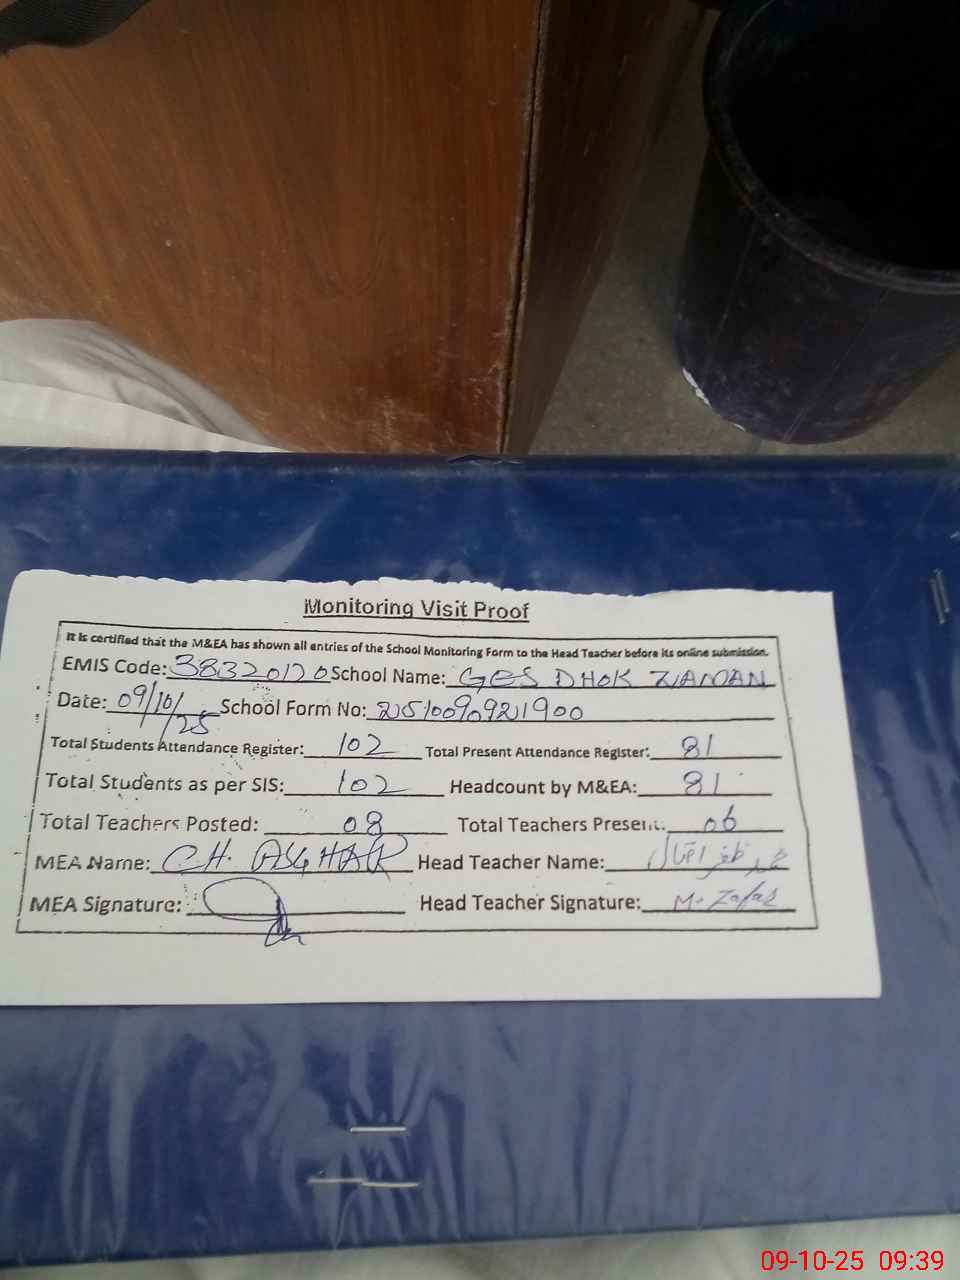 Monitoring Visit Proof
It is certified that the M&EA has shown all entries of the School Monitoring Form to the Head Teacher before its online submission.
EMIS Code: 38320120 School Name: GES DHOK ZAMAN
Date: 09/10/25 School Form No: 2510090921900
Total Students Attendance Register: 102 Total Present Attendance Register: 81
Total Students as per SIS: 102 Headcount by M&EA: 81
Total Teachers Posted: 08 Total Teachers Present: 06
MEA Name: CH. ASGHAR Head Teacher Name: محمد ظفر اقبال
MEA Signature: Head Teacher Signature: M. Zafar
09-10-25 09:39